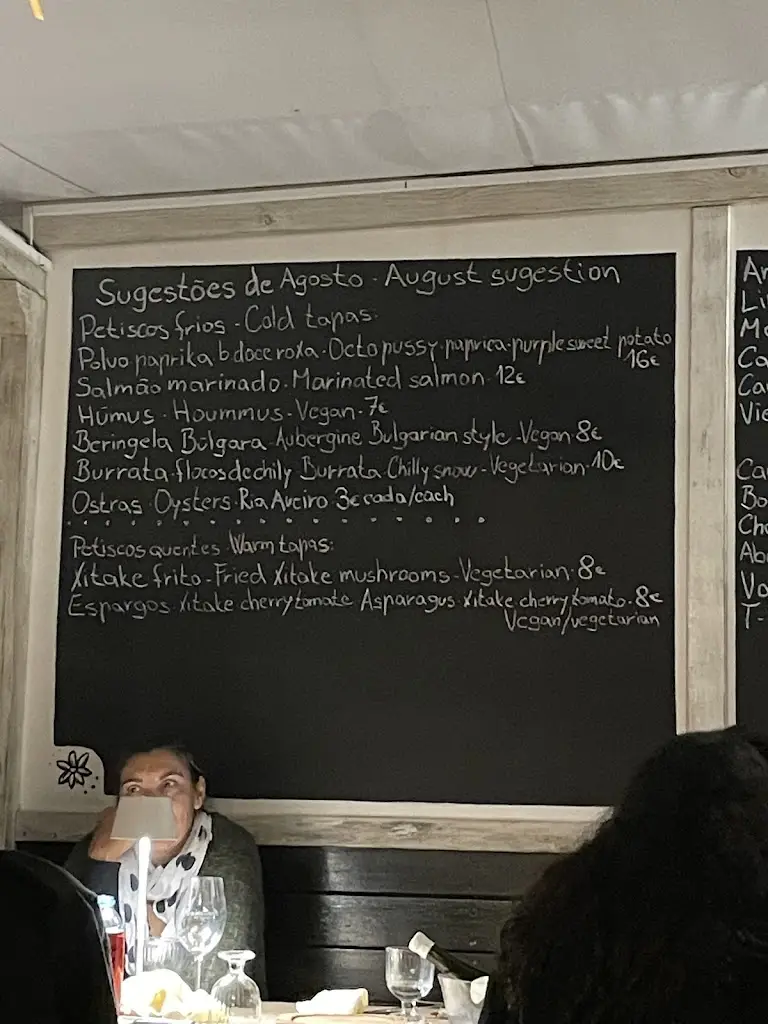 Sugestões de Agosto - August sugestion
Petiscos frios - Cold tapas:
Polvo paprika b.doce roxa - Octopussy paprica purple sweet potato
16€
Salmão marinado - Marinated salmon - 12€
Húmus - Hoummus - Vegan - 7€
Beringela Búlgara - Aubergine Bulgarian style - Vegan 8€
Burrata flocos de chily Burrata Chilly snow - Vegetarian - 10€
Ostras - Oysters - Ria Aveiro 3€ cada/each
Petiscos quentes Warm tapas:
Xitake frito - Fried Xitake mushrooms - Vegetarian - 8€
Espargos - Xitake cherry tomate Asparagus - Xitake cherry tomato - 8€
Vegan/vegetarian
Ar
Li
Me
Ca
Ca
Vie
Ca
Bo
Ch
Ab
T-